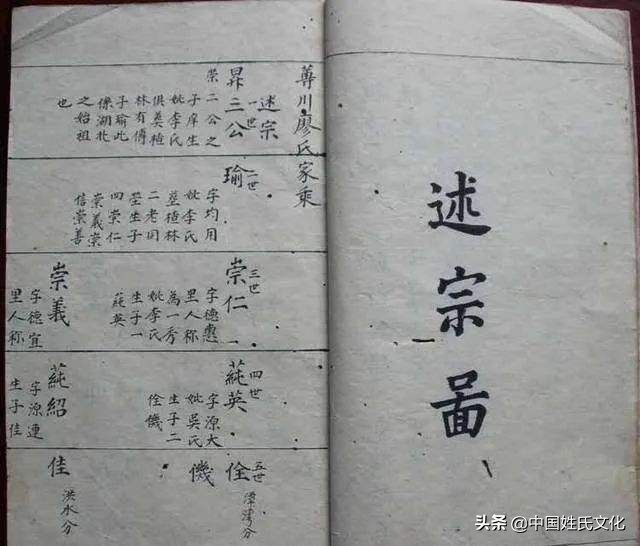 述宗啚
蓴川廖氏家乘
述宗
一世
昇三公
榮二公之
子庠生
妣李氏
俱葬植
林有傳
子瑜此
係湖北
之始祖
也
二世
瑜
字均用
妣李氏
塟植林
二老同
塋生子
四崇仁
崇義崇
信崇善
三世
崇仁
字德惠
里人称
為一秀
妣李氏
生子一
蒓英
崇義
字德宜
里人称
四世
蒓英
字源大
妣吳氏
生子二
佺僟
蒓紹
字源連
生子佳
五世
佺
僟
佳
洪水分
头条 @中国姓氏文化